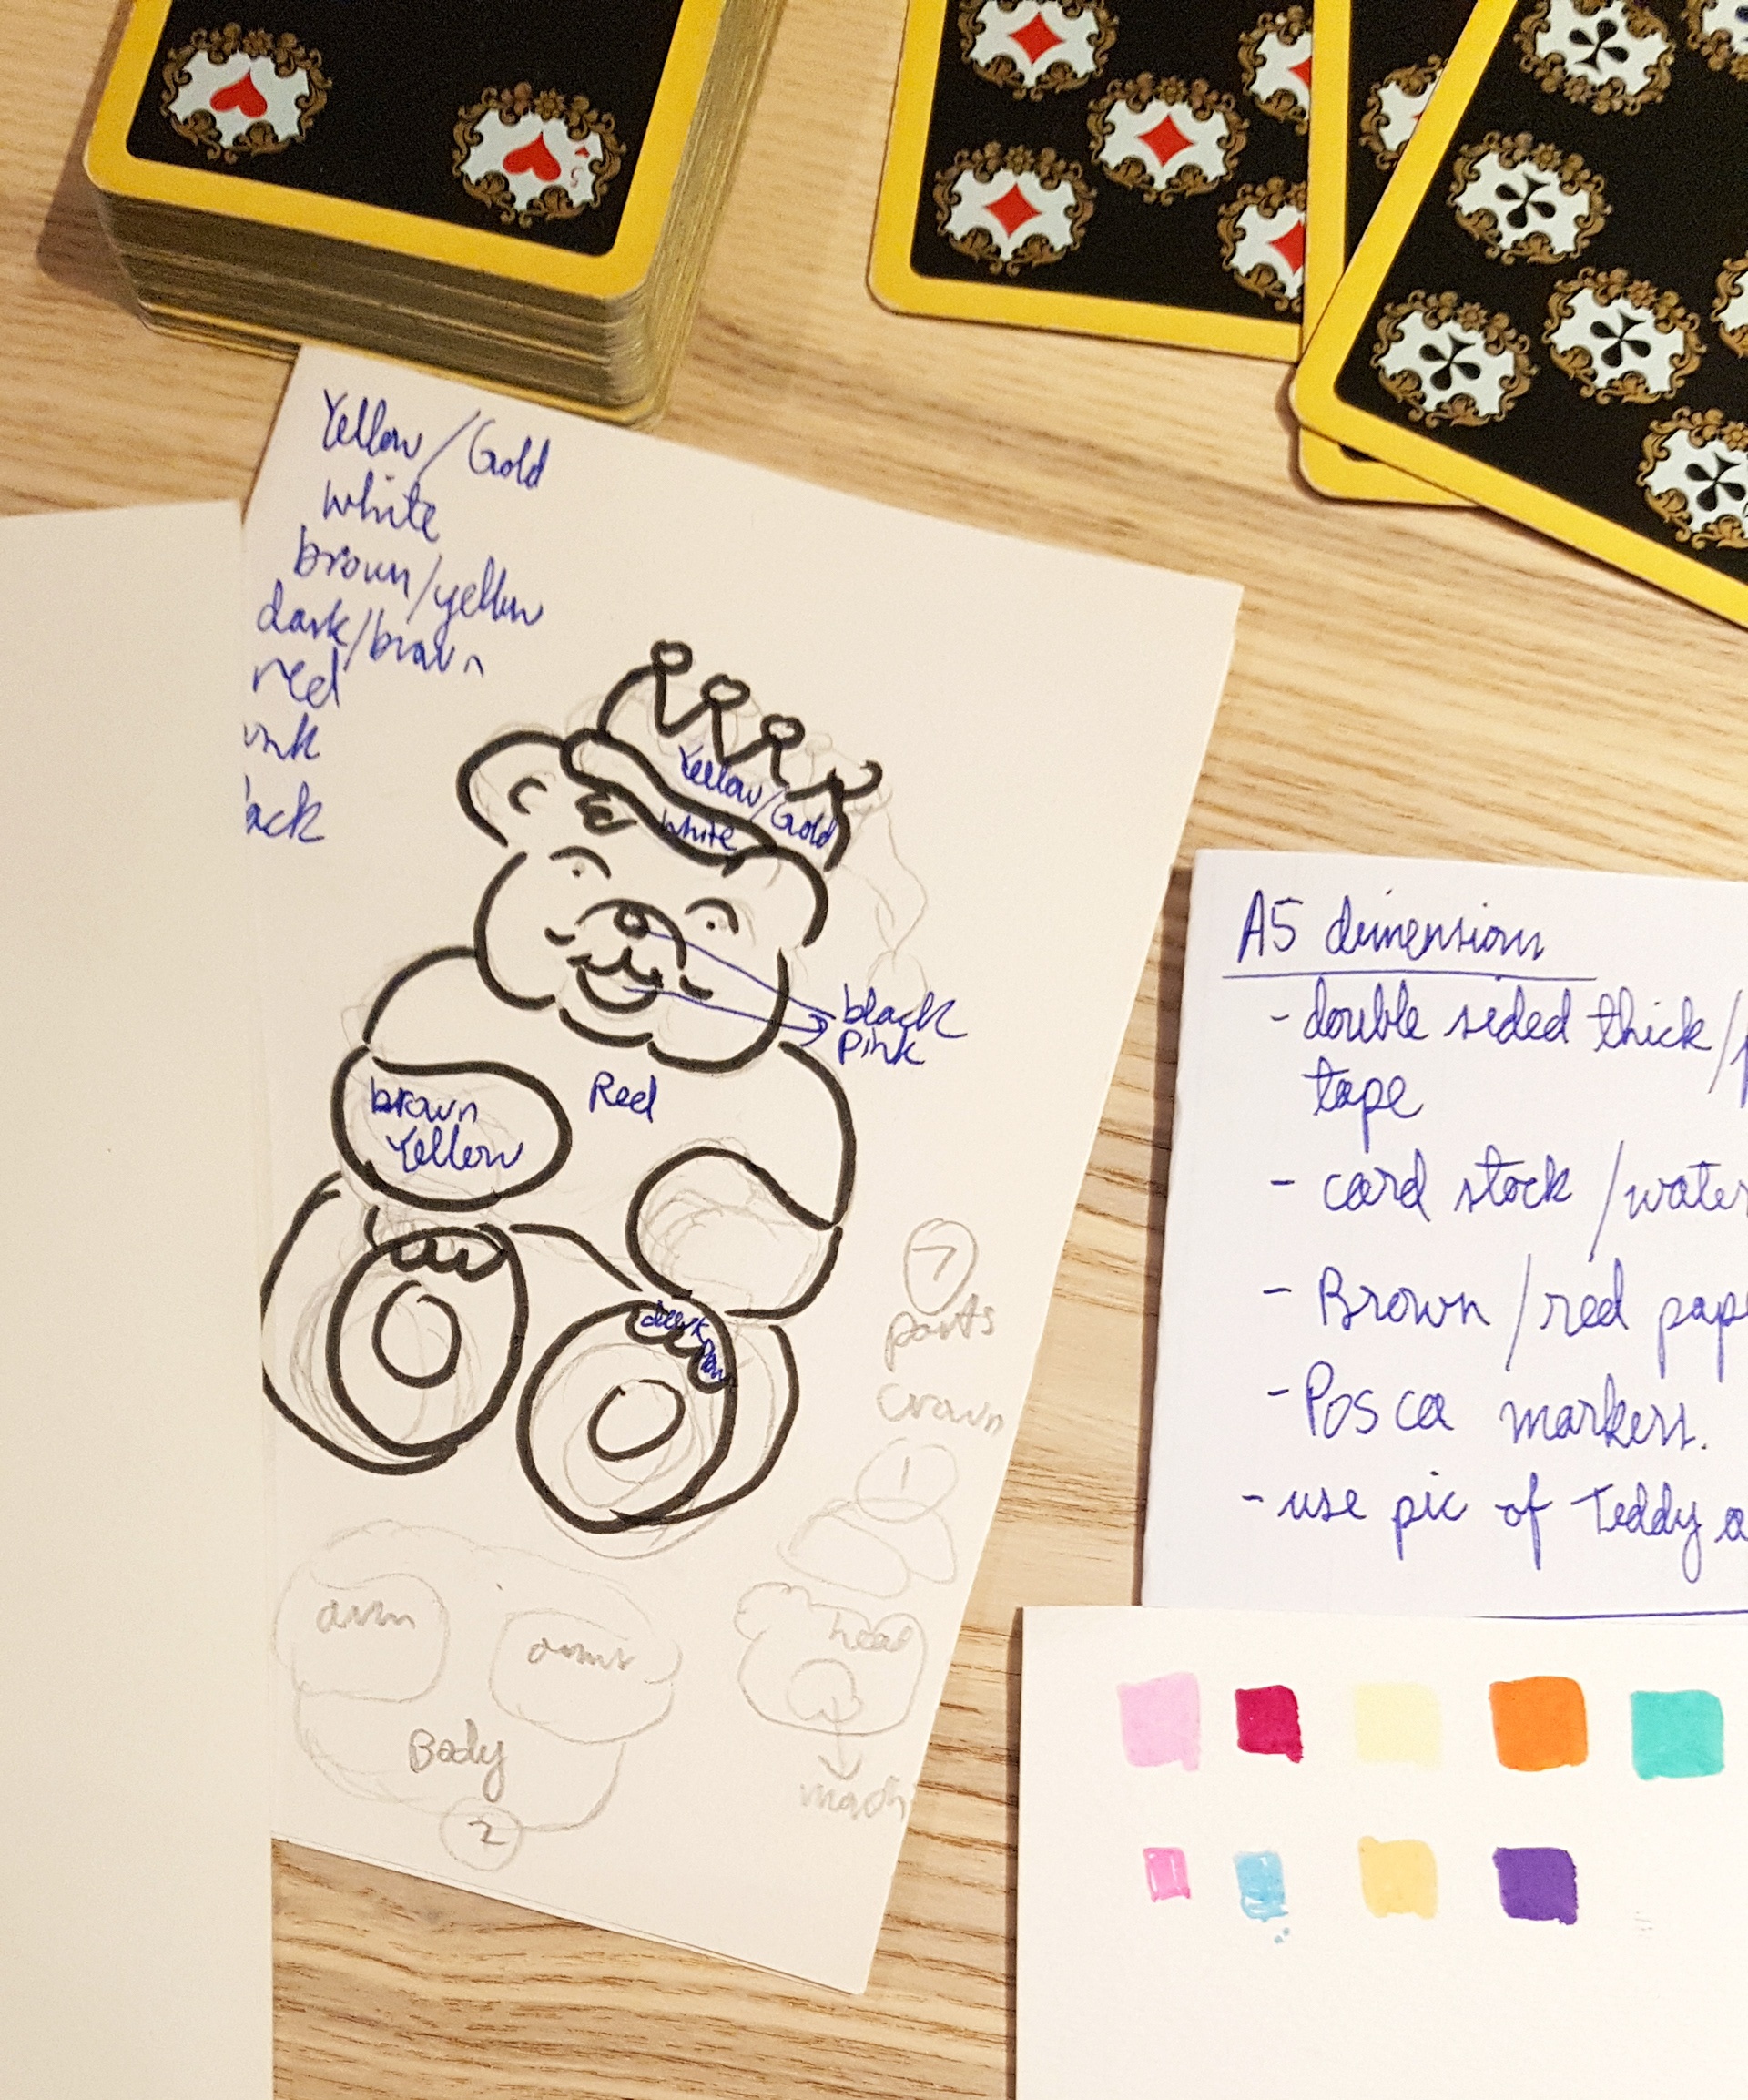 Yellow/Gold
white
brown/yellow
dark/brown
red
Yellow/Gold
white
black
pink
Red
brown
Yellow
dark
7
parts
crown
1
arm
arms
head
Body
2
A5 dimension
- double sided thick/
tape
- card stock /water
- Brown/red pape
- Posca markers.
- use pic of Teddy a